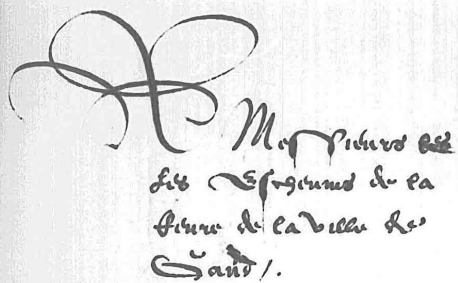 A Messieurs
les Escheuins de la
keure de la ville de
Gand /.